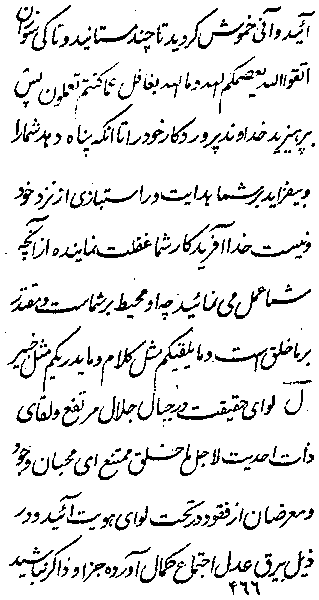 آئید و آنی خموش کردید تا چند مستانید و تا کی سوزان
اتقوا الله یعصمکم لهد و ما الله بغافل عما کنتم تعملون پس
بپرهیزید خداوند پروردکار خود را تا انکه پناه دهد شما را
و بیفزاید بر شما هدایت و راستبازی از نزد خود
و نیست خدا آفریدکار شما غفلت نماینده از آنچه
شما عمل می نمائید چه او محیط بر شماست و مقتدر
بر ما خلق است و ما یلقیکم مثل کلام و ما یدریکم مثل خبیر
ل لوای حقیقت در جبال جلال مرتفع و لقای
ذات احدیت لاجل ما خلق ممتنع ای محبان وجود
و معرضان از فقود در تحت لوای هویت آئید و در
ذیل بیرق عدل اجتماع کمال آورده جزا و ذاکر نباشید
۴۶۶